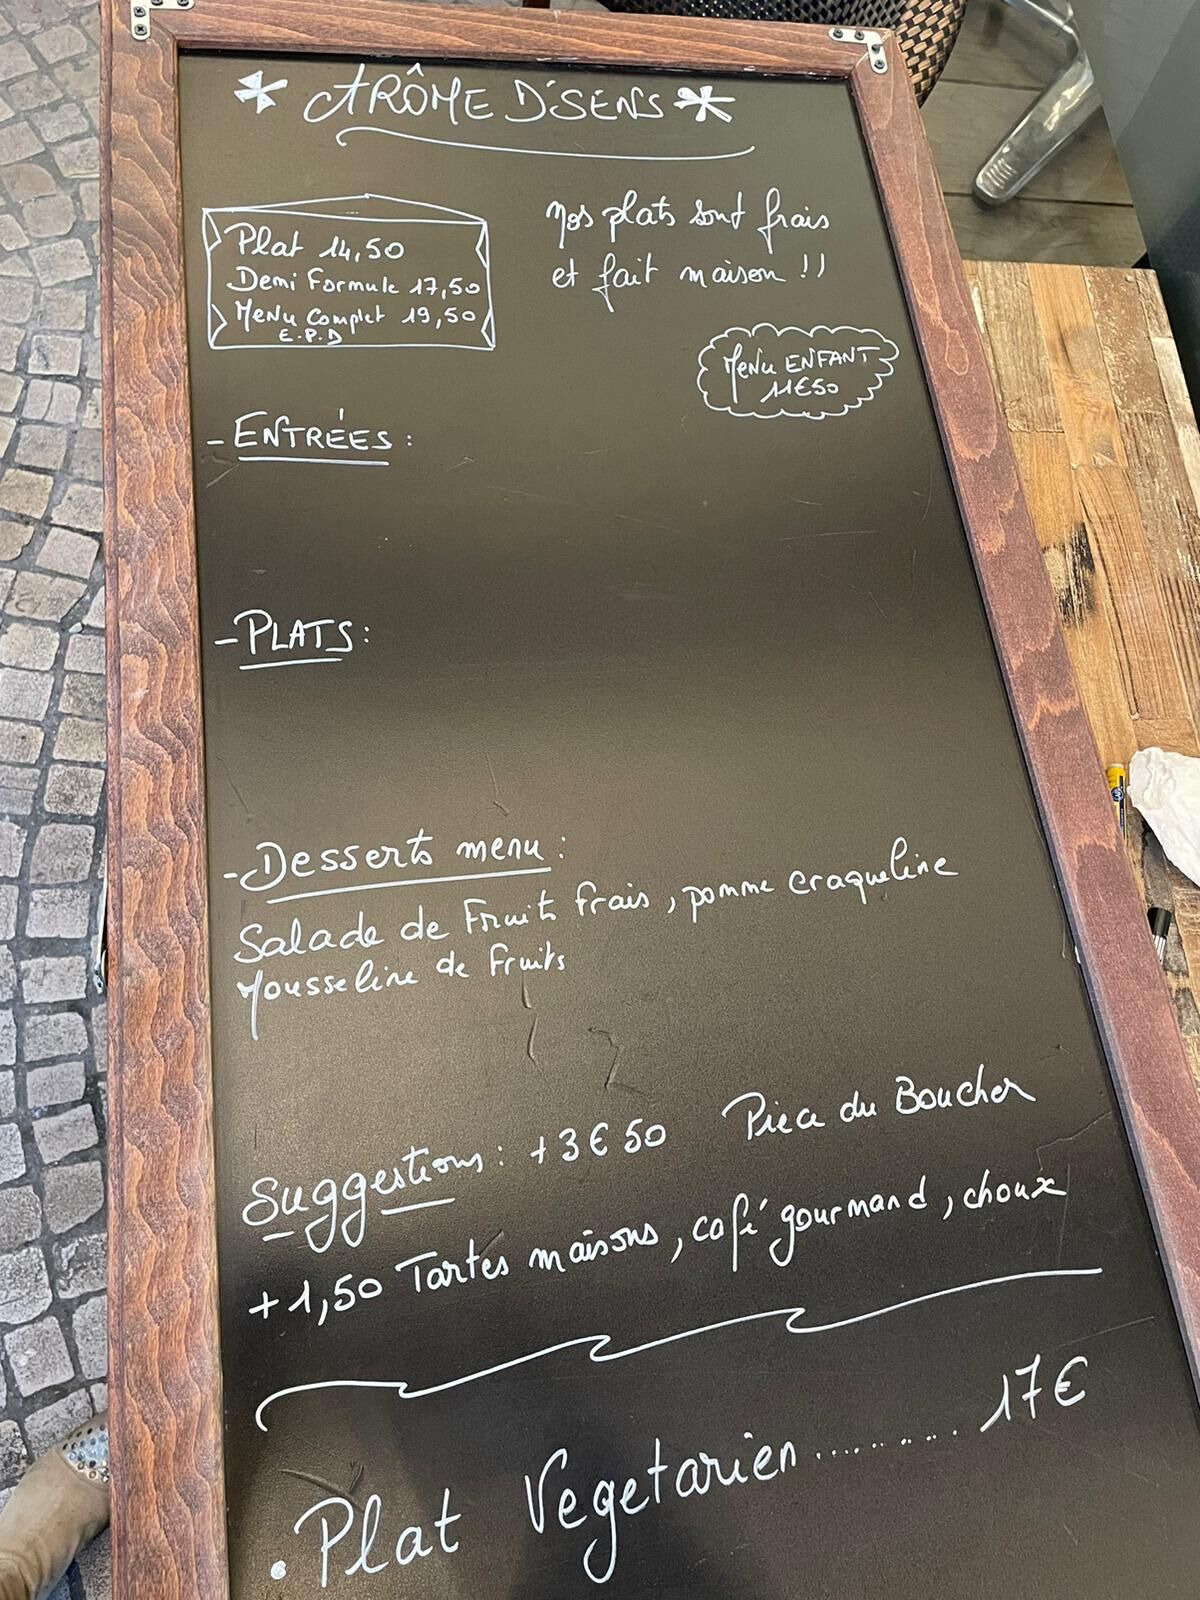 * ARÔME D'SENS *
Plat 14,50
Demi Formule 17,50
Menu Complet 19,50
E.P.D
Nos plats sont frais
et fait maison !!
Menu ENFANT
11€50
- ENTRÉES :
- PLATS :
- Desserts menu :
Salade de Fruits frais, pomme craqueline
Mousseline de Fruits
Suggestions : +3€50 Pièce du Boucher
+1,50 Tartes maisons, café gourmand, choux
• Plat Vegetarien ......... 17€